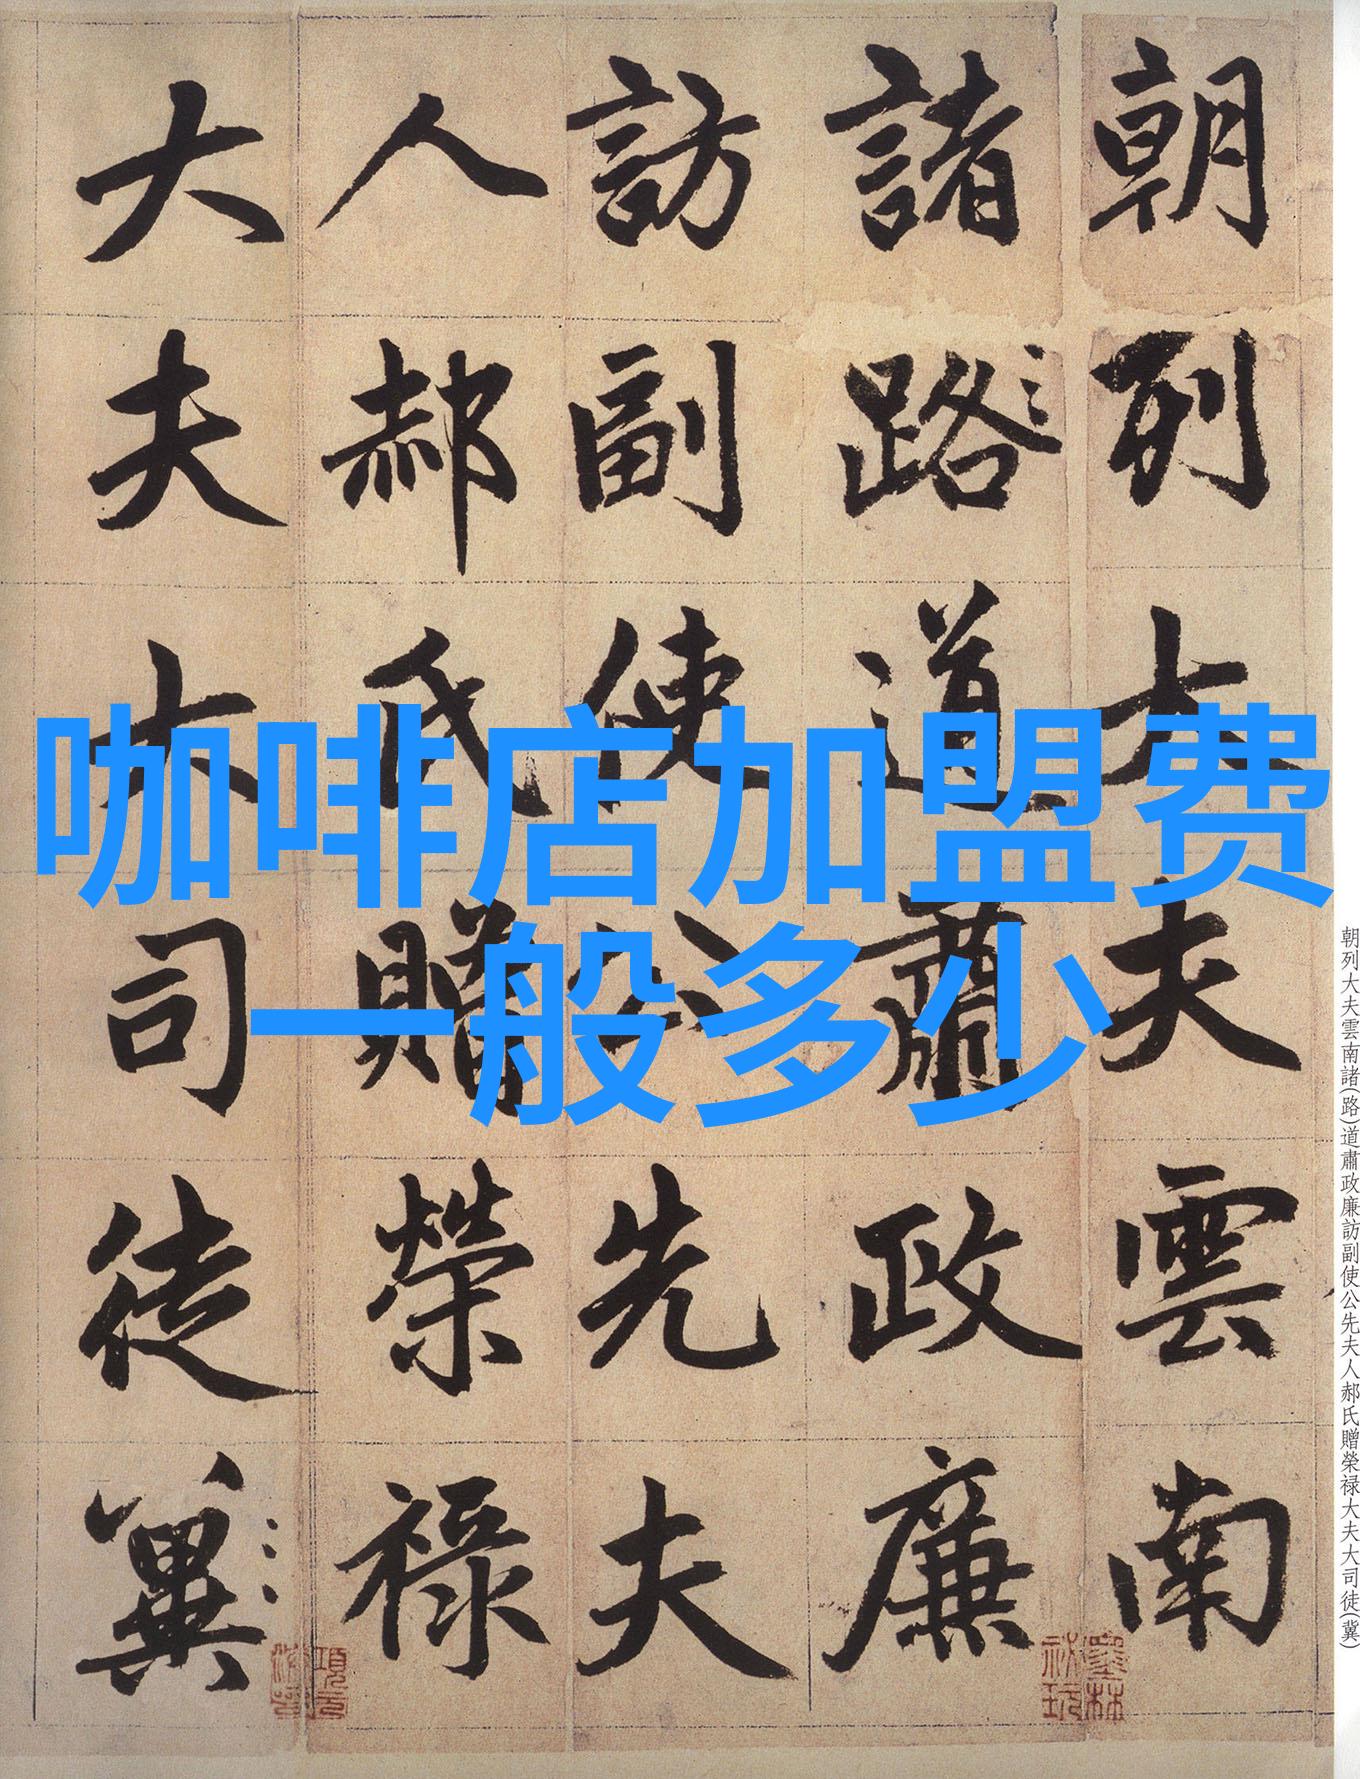 咖啡店加盟费
一般多少
朝列大夫雲南
諸路道肅政廉
訪副使公先夫
人郝氏贈榮禄
大夫大司徒冀
朝列大夫雲南諸(路)道肅政廉訪副使公先夫人郝氏贈榮禄大夫大司徒(冀)